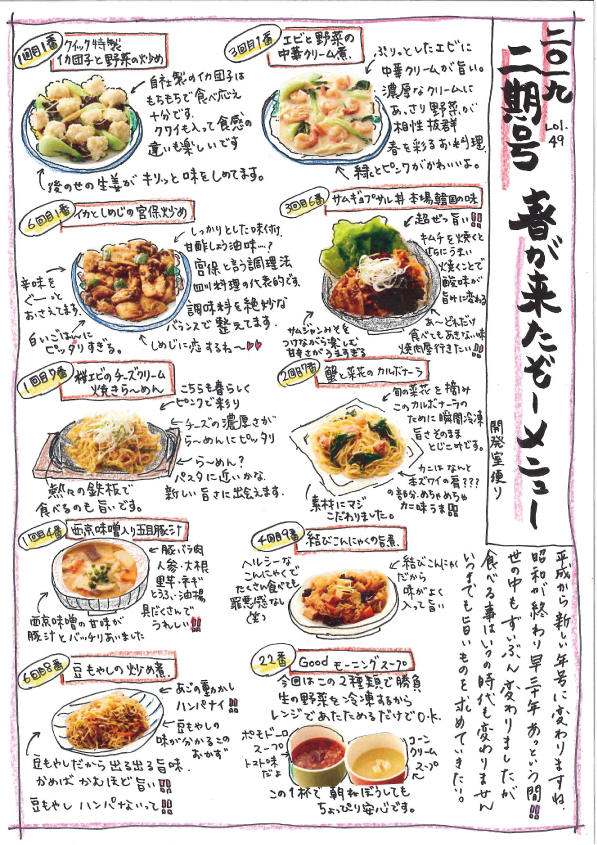 二〇一九
二期号 春が来たぞーメニュー
Lol.
49
開発室便り
1回目1番
クイック特製
イカ団子と野菜の炒め
自社製のイカ団子は
もちもちで食べ応え
十分です。
クワイも入って食感の
違いも楽しいです
後のせの生姜がキリッと味をしめてます。
3回目7番
エビと野菜の
中華クリーム煮。
ぷりっとしたエビに
中華クリームが旨い。
濃厚なクリームに
あっさり野菜が
相性抜群
春を彩るお料理。
緑とピンクがかわいいよ。
6回目1番
イカとしめじの宮保炒め
しっかりとした味付け。
甘酢しょうゆ味…?
宮保と言う調理法
四川料理の代表的です。
調味料を絶妙な
バランスで整えてます。
辛味を
ぐーっと
おさえてます。
白いごはんに
ピッタリすぎる。
しめじに恋するね〜♥♥
3回目6番
サムギョプサル丼 本場韓国の味
超ぜっ旨い!!
キムチを焼くと
さらにうまい
焼くことで
酸味が
旨みに変わる
あ〜どれだけ
食べてもあきない味
焼肉屋行きたい!!
サムジャンみそを
つけながら楽しむ
甘辛さがうますぎる
1回目7番
桜エビのチーズクリーム
焼きら〜めん
こちらも春らしく
ピンクで彩り
チーズの濃厚さが
ら〜めんにピッタリ
ら〜めん?
パスタに近いかな。
新しい旨さに出会えます。
熱々の鉄板で
食べるのも旨いです。
2回目7番
蟹と菜花のカルボナーラ
旬の菜花を摘み
このカルボナーラの
ために瞬間冷凍
旨さそのまま
とじこめです。
カニはなんと
本ズワイの肩???
の部分。めちゃめちゃ
カニ味うま!!!
素材にマジ
こだわりました。
1回目4番
西京味噌入り五目豚汁
豚バラ肉
人参・大根
里芋・ネギ
とうふ・油揚
具だくさんで
うれしい!!
西京味噌の甘味が
豚汁とバッチリあいました
4回目9番
結びこんにゃくの旨煮。
ヘルシーな
こんにゃくで
たくさん食べても
罪悪感なし
(笑)
結びこんにゃく
だから
味がよく
入って旨い
6回目8番
豆もやしの炒め煮。
あごの動かし
ハンパナイ!!
豆もやしの
味が分かるこの
おかず
豆もやしだから出る出る旨味。
かめばかむほど旨い!!
豆もやしハンパないって!!
22番
Good モーニングスープ
今回はこの2種類で勝負
生の野菜を冷凍するから
レンジであたためるだけでO.K.
ポモドーロ
スープ
トマト味
だよ
コーン
クリーム
スープ
この1杯で朝ねぼうしても
ちょっぴり安心です。
平成から新しい年号に変わりますね。
昭和が終わり早三十年あっという間!!
世の中もずいぶん変わりましたが
食べる事はいつの時代も変わりません
いつまでも旨いものを求めていきたい。